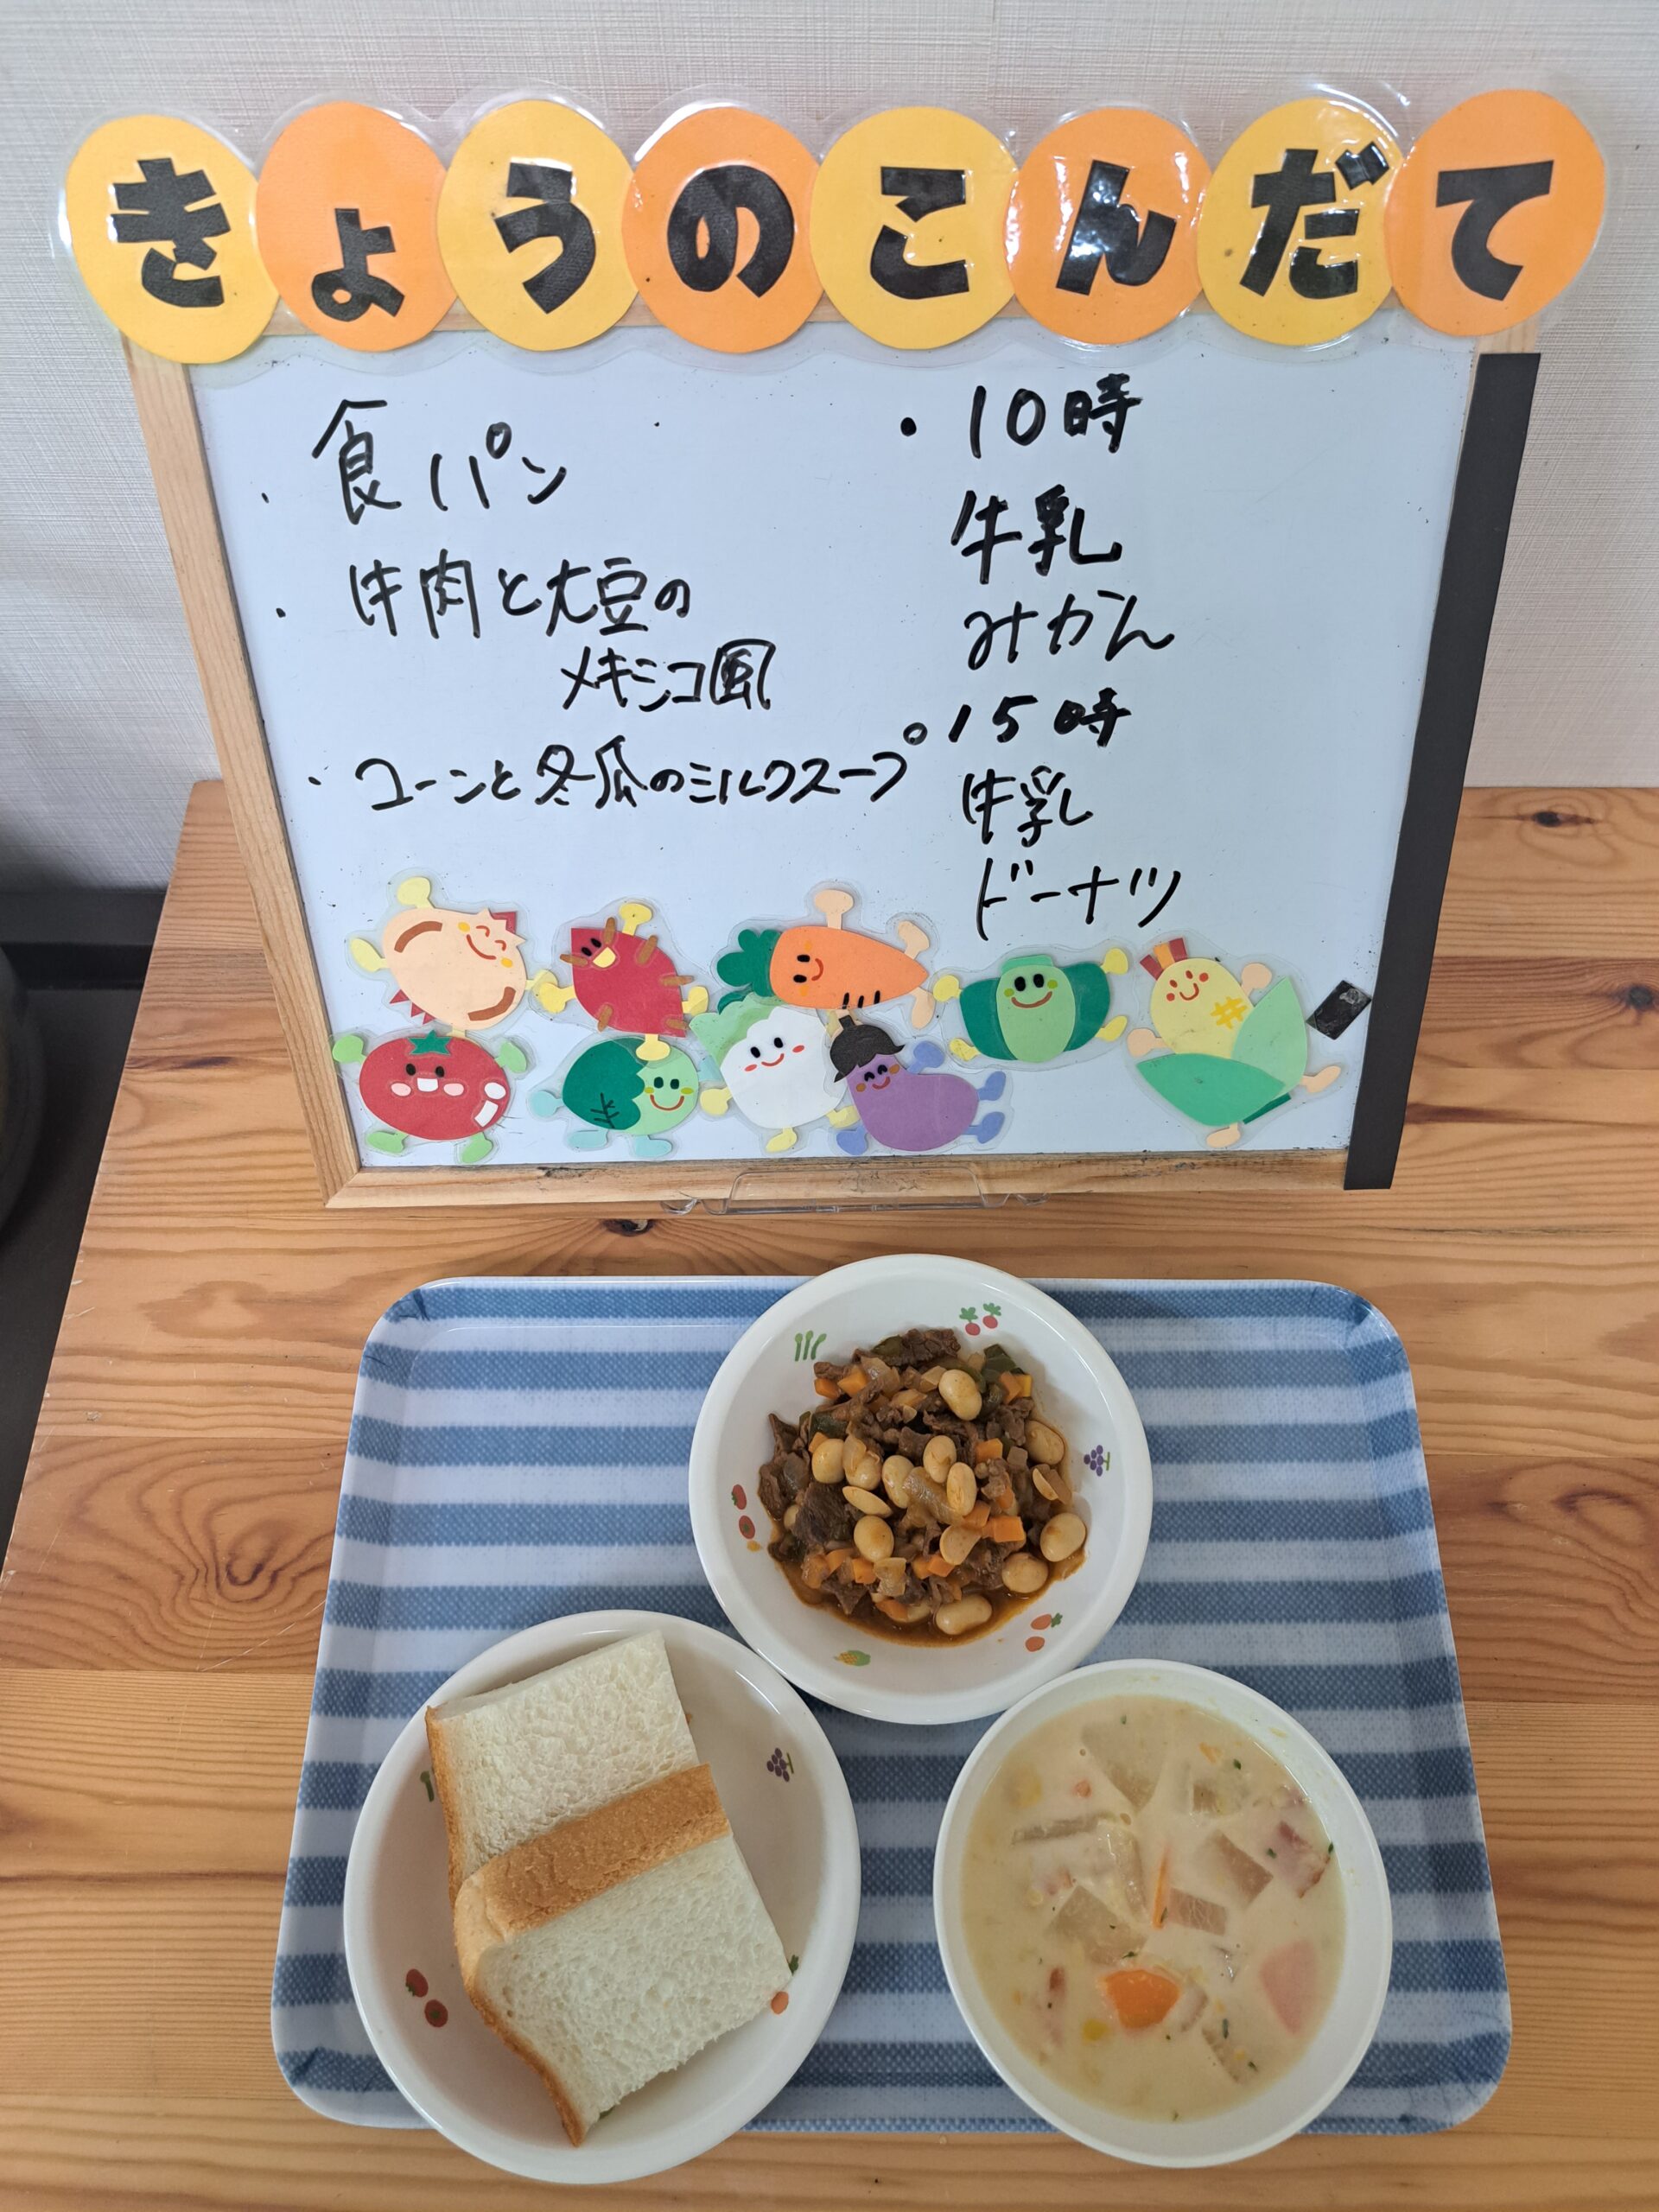 きょうのこんだて
・食パン
・牛肉と大豆の
メキシコ風
・コーンと冬瓜のミルクスープ
・10時
牛乳
みかん
15時
牛乳
ドーナツ